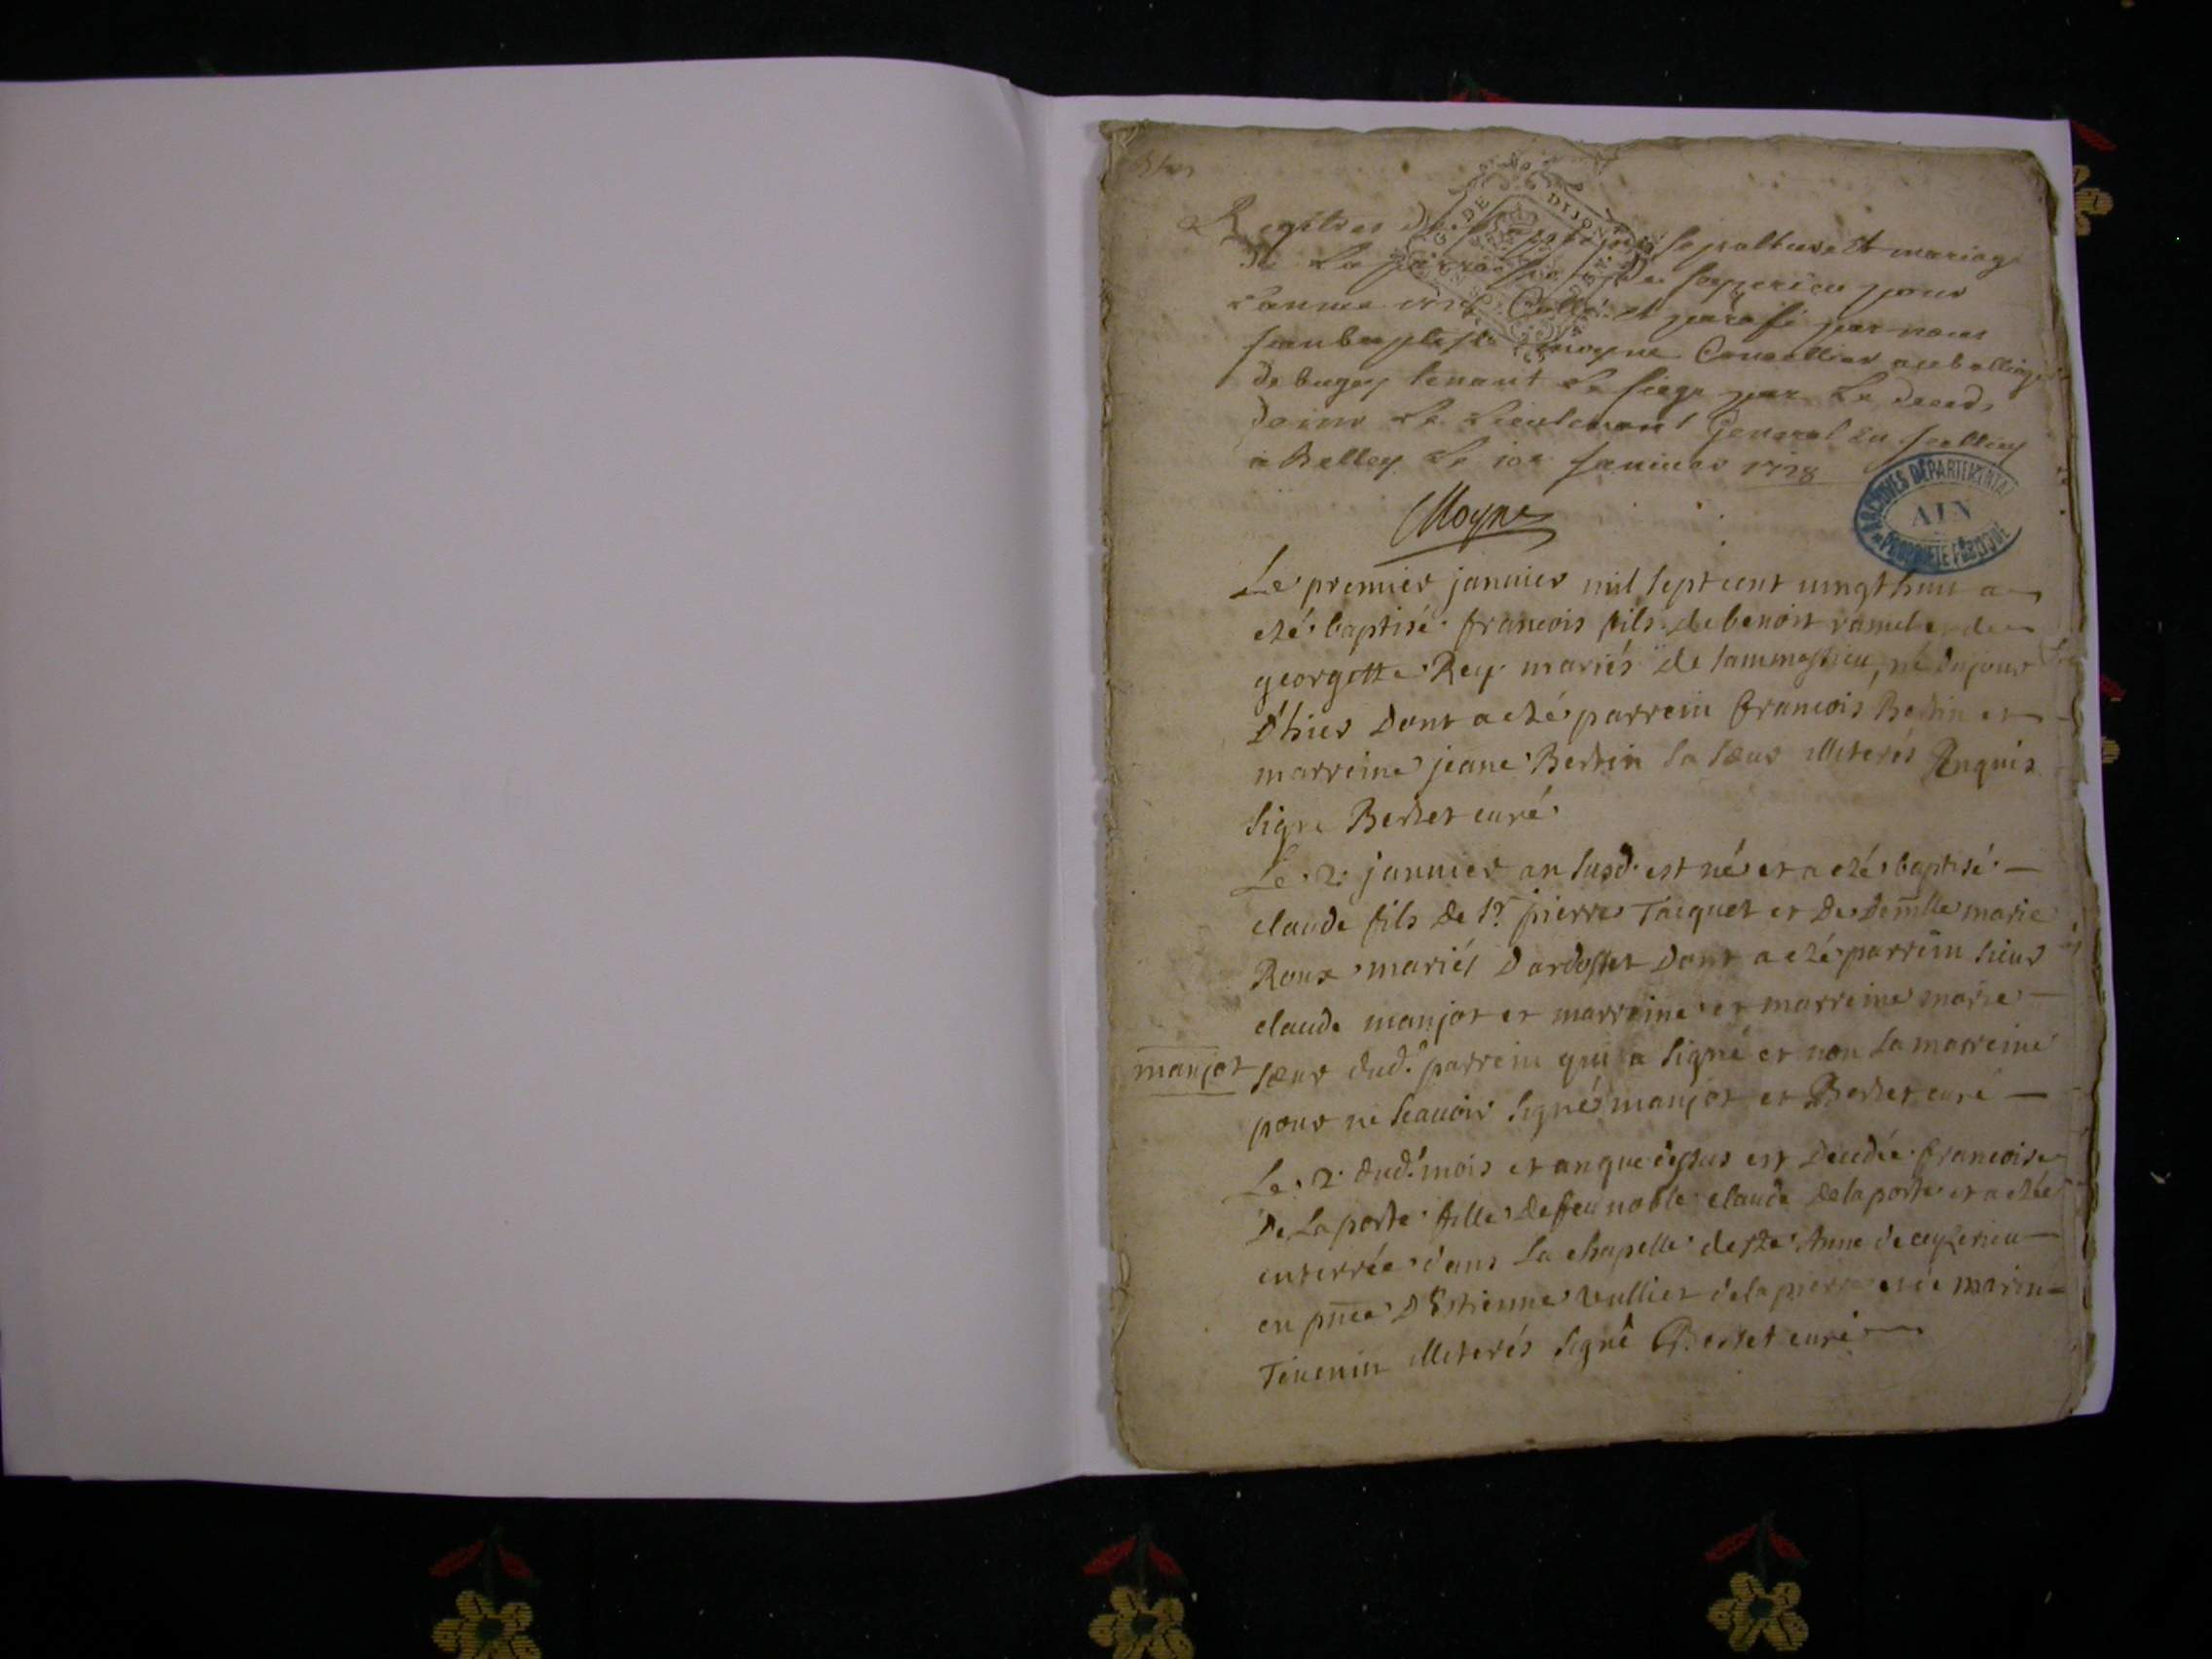 G. DE DIJON
Registres de sepulture et mariage
de La parroisse de pour
L'annee Cotté et parafé par nous
Jeanbaptiste moyne Conseiller au balliage
de bugey tenant Le siege par Le deceds
de Le Lieutenant General
a Belley Le 10e Janvier 1728
Moyne
ARCHIVES DÉPARTEMENTALES
AIN
PROPRIÉTÉ PUBLIQUE
Le premier januier mil sept cent uingt huit a
eté baptisé francois fils de benoit ramel et de
georgette Rey mariés de, né du jour
d'hier dont a eté parrein francois Bertin et
marreine jeane Bertin sa sœur illiterés Enquis
signe Berthet curé
Le 2 januier an susd. est né et a eté baptisé
claude fils de Sr. pierre Tacquet et de demlle marie
Roux mariés d'ardosset dont a eté parrein sieur
claude manjot et marreine et marreine marie
manjot sœur dud. parrein qui a signé et non la marreine
pour ne scauoir signé manjot et Berthet curé
Le 2 dud. mois et an que dessus est decedée francoise
De Laporte fille de feu noble claude delaporte et a etée
enterrée dans la chapelle de ste Anne de ceyzerieu
en pnce d'Estienne vullier de la pierre et de
Tevenin illiterés signé Berthet curé